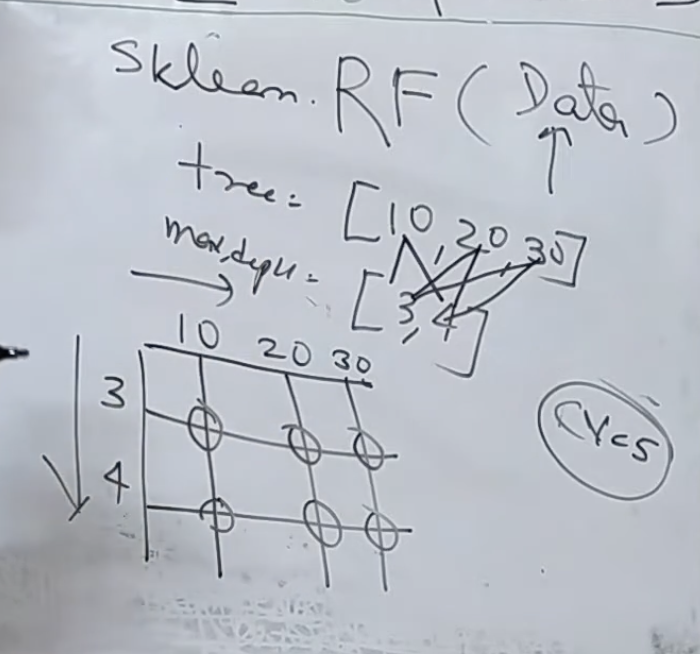 Sklearn. RF ( Data )
tree = [10, 20, 30]
max_depth = [3, 4]
10 20 30
3
4
CV=5